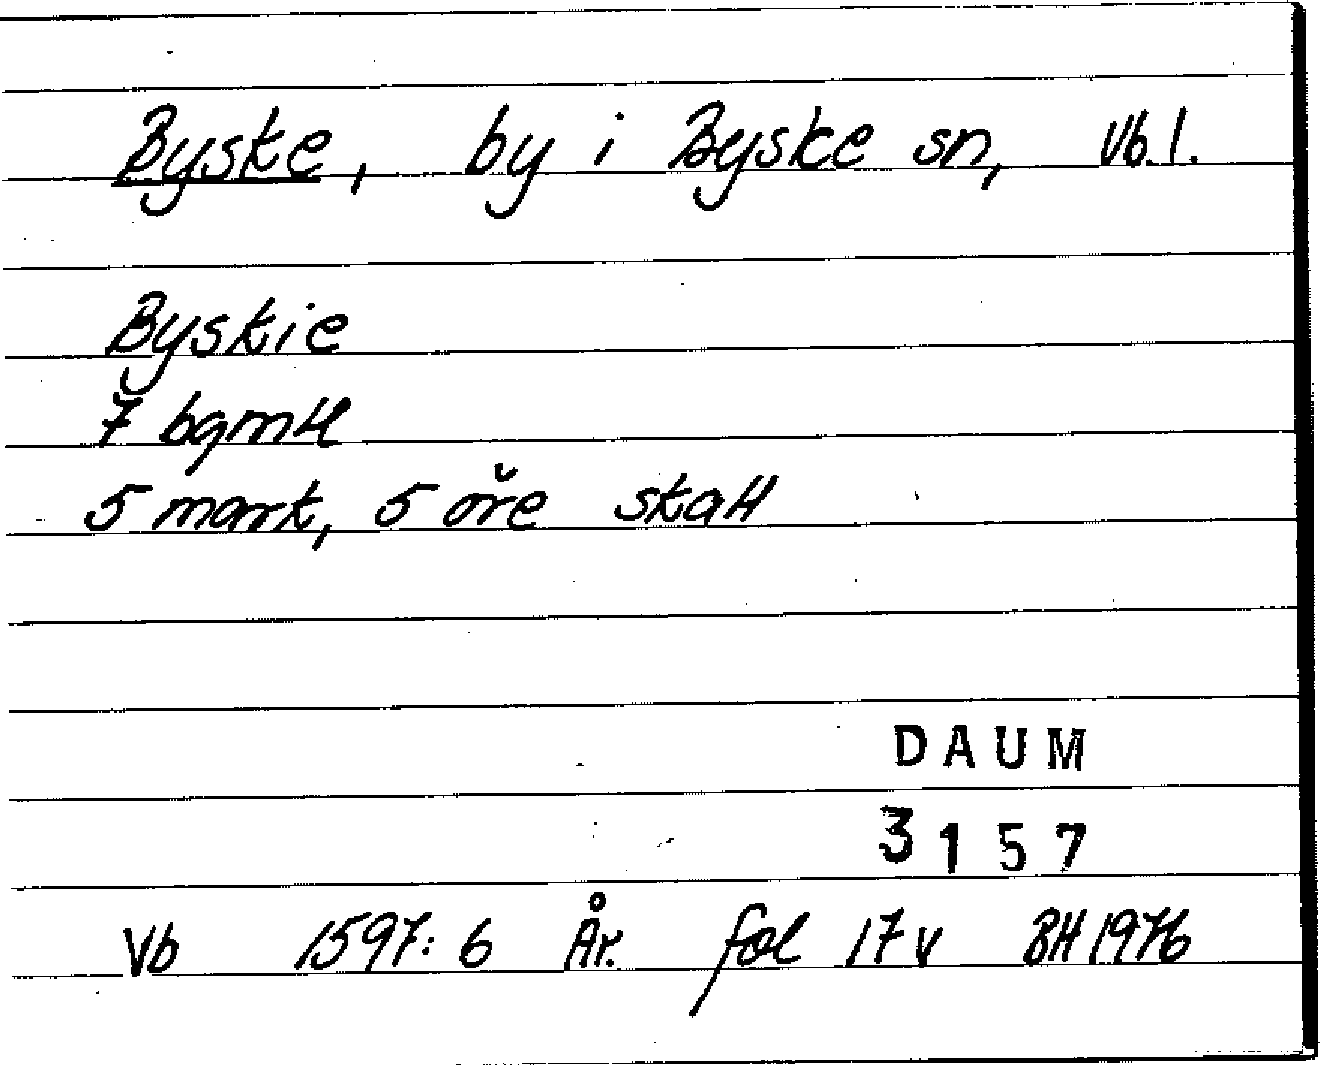 Byske, by i Byske sn, Vb.l.
Byskie
7 bgmH
5 mark, 5 öre skatt
DAUM
3157
Vb 1597:6 År. fol 17v BH 1976